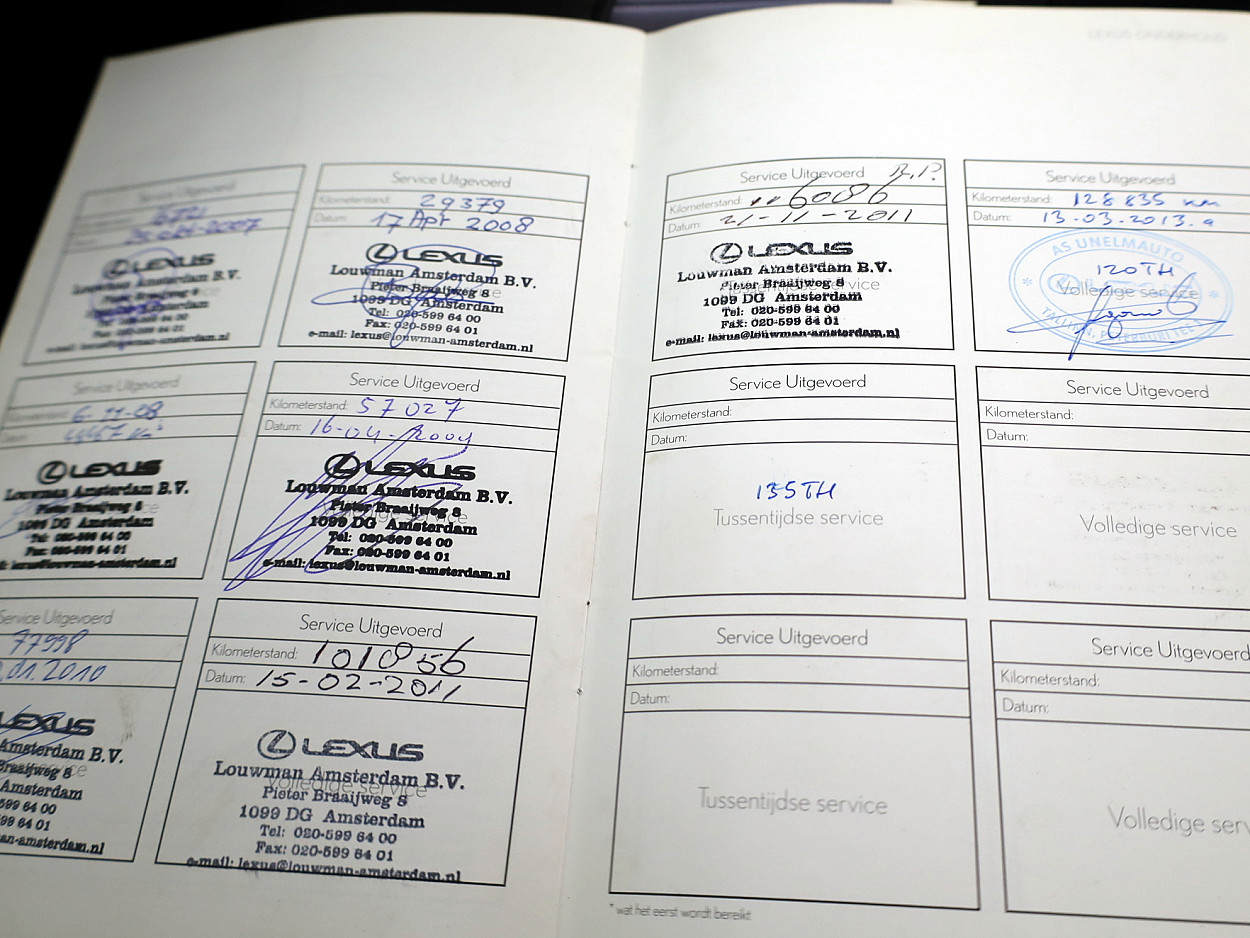 Service Uitgevoerd
LEXUS
Service Uitgevoerd
Kilometerstand: 29379
Datum: 17 Apr 2008
LEXUS
Louwman Amsterdam B.V.
Pieter Braaijweg 8
1099 DG Amsterdam
Tel: 020-599 64 00
Fax: 020-599 64 01
e-mail: lexus@louwman-amsterdam.nl
Service Uitgevoerd
6-11-08
LEXUS
Louwman Amsterdam B.V.
Pieter Braaijweg 8
1099 DG Amsterdam
Tel: 020-599 64 00
Fax: 020-599 64 01
lexus@louwman-amsterdam.nl
Service Uitgevoerd
Kilometerstand: 57027
Datum: 16-04-2009
LEXUS
Louwman Amsterdam B.V.
Pieter Braaijweg 8
1099 DG Amsterdam
Tel: 020-599 64 00
Fax: 020-599 64 01
e-mail: lexus@louwman-amsterdam.nl
Service Uitgevoerd
77998
.01.2010
LEXUS
Amsterdam B.V.
Braaijweg 8
Amsterdam
599 64 00
99 64 01
an-amsterdam.nl
Service Uitgevoerd
Kilometerstand: 101856
Datum: 15-02-2011
LEXUS
Louwman Amsterdam B.V.
Volledige service
Pieter Braaijweg 8
1099 DG Amsterdam
Tel: 020-599 64 00
Fax: 020-599 64 01
e-mail: lexus@louwman-amsterdam.nl
Service Uitgevoerd R.P.
Kilometerstand: 6086
Datum: 21-11-2011
LEXUS
Louwman Amsterdam B.V.
Pieter Braaijweg 8
Tussentijdse service
1099 DG Amsterdam
Tel: 020-599 64 00
Fax: 020-599 64 01
e-mail: lexus@louwman-amsterdam.nl
Service Uitgevoerd
Kilometerstand: 128 835 km
Datum: 13.03.2013.a
AS UNELMAUTO
120TH
Volledige service
Service Uitgevoerd
Kilometerstand:
Datum:
135TH
Tussentijdse service
Service Uitgevoerd
Kilometerstand:
Datum:
Volledige service
Service Uitgevoerd
Kilometerstand:
Datum:
Tussentijdse service
Service Uitgevoerd
Kilometerstand:
Datum:
Volledige serv
* wat het eerst wordt bereikt